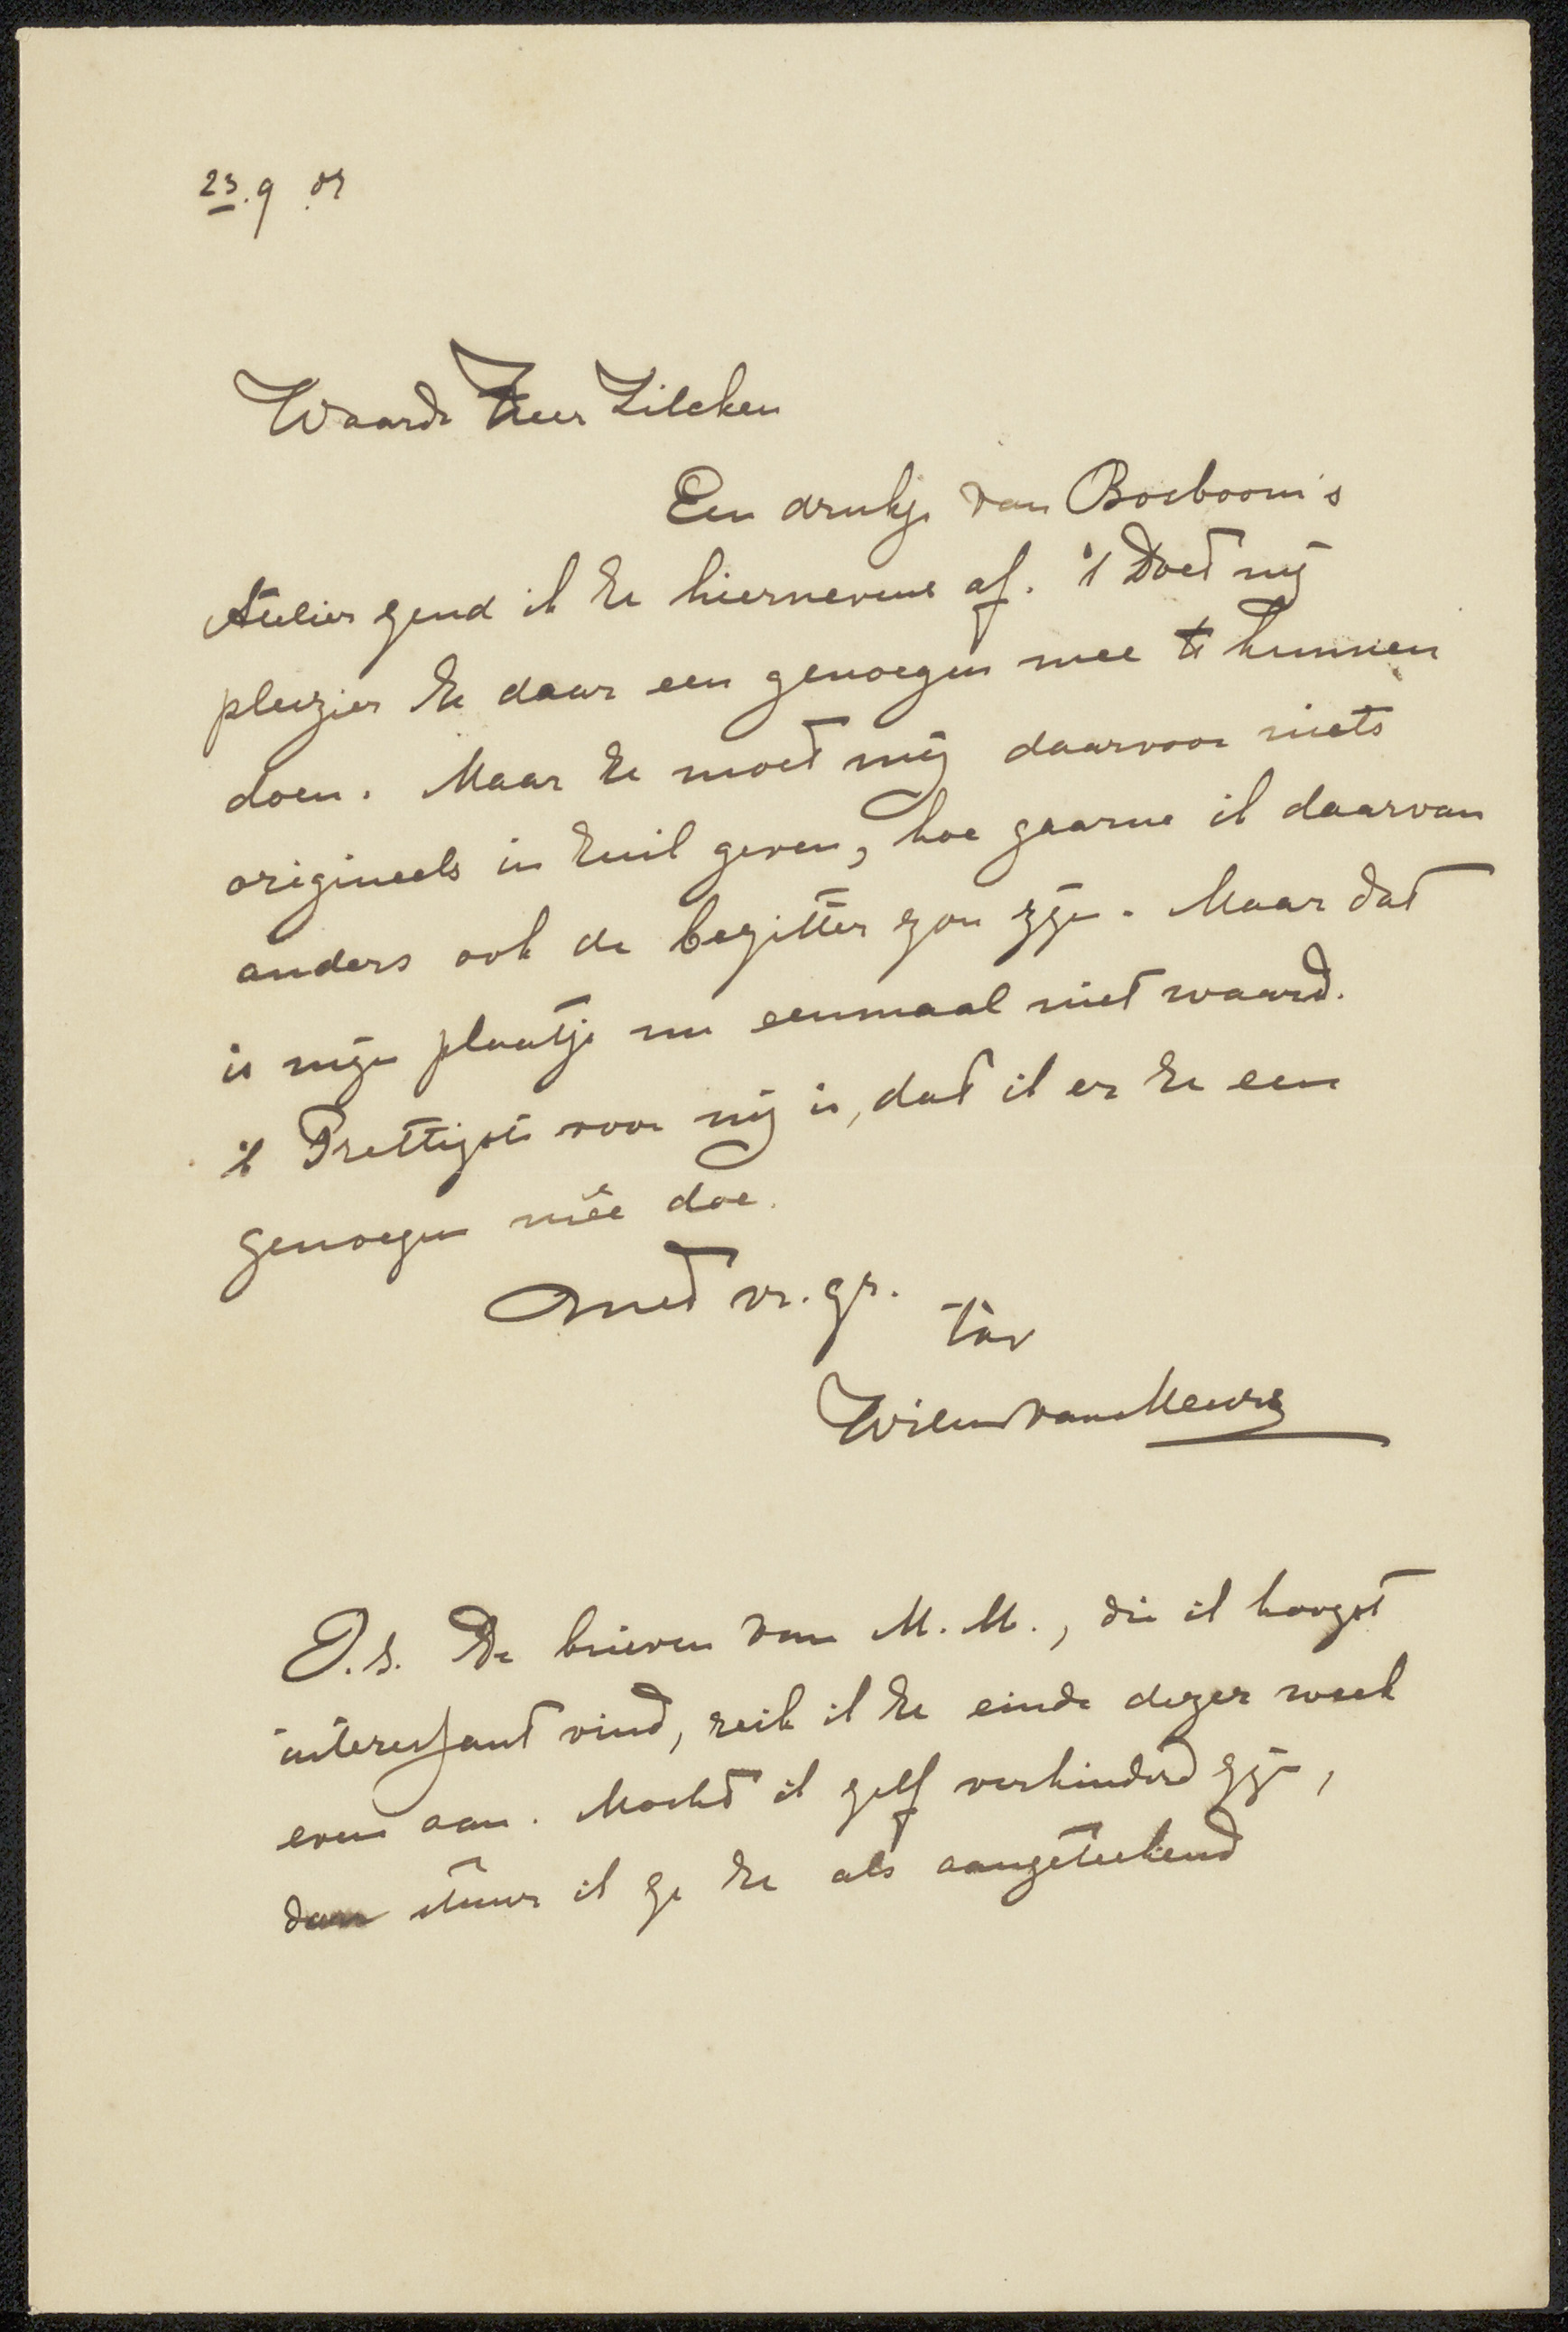 23.9.09
Waarde Heer Zilcken
Een drukje van Bosboom's
Atelier zend ik Ue hiernevens af. 't Doet mij
pleizier Ue daar een genoegen mee te kunnen
doen. Maar Ue moet mij daarvoor niets
origineels in ruil geven, hoe gaarne ik daarvan
anders ook de bezitter zou zijn. Maar dat
is mijn plaatje nu eenmaal niet waard.
't Prettigste voor mij is, dat ik er Ue een
genoegen mêe doe.
Met vr. gr.
tàv
Willem van Meurs
P.S. De brieven van M.M., die ik hoogst
interessant vind, reik ik Ue einde dezer week
even aan. Mocht ik zelf verhinderd zijn,
dan stuur ik ze Ue als aangeteekend